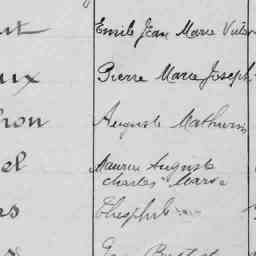 Emile Jean Marie Victor
Pierre Marie Joseph
hon Auguste Mathurin
el Maurice Auguste
Charles Marie
Théophile